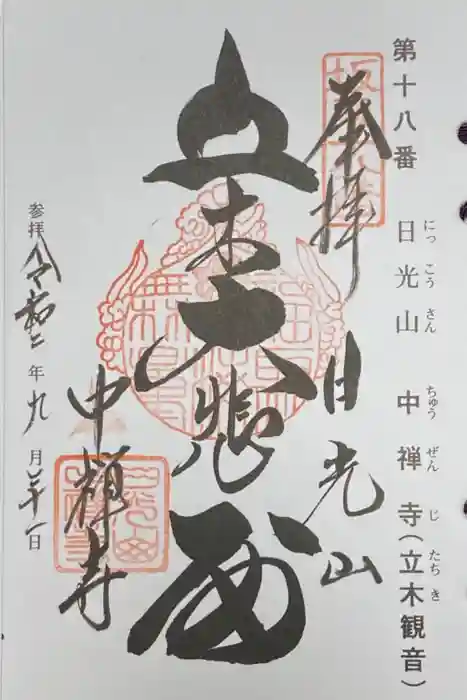 第十八番 日光山 中禅寺(立木観音)
にっ こう さん ちゅう ぜん じ たち き
奉拝 日光山
立木大悲殿
中禅寺
参拝 令和二年九月二十一日